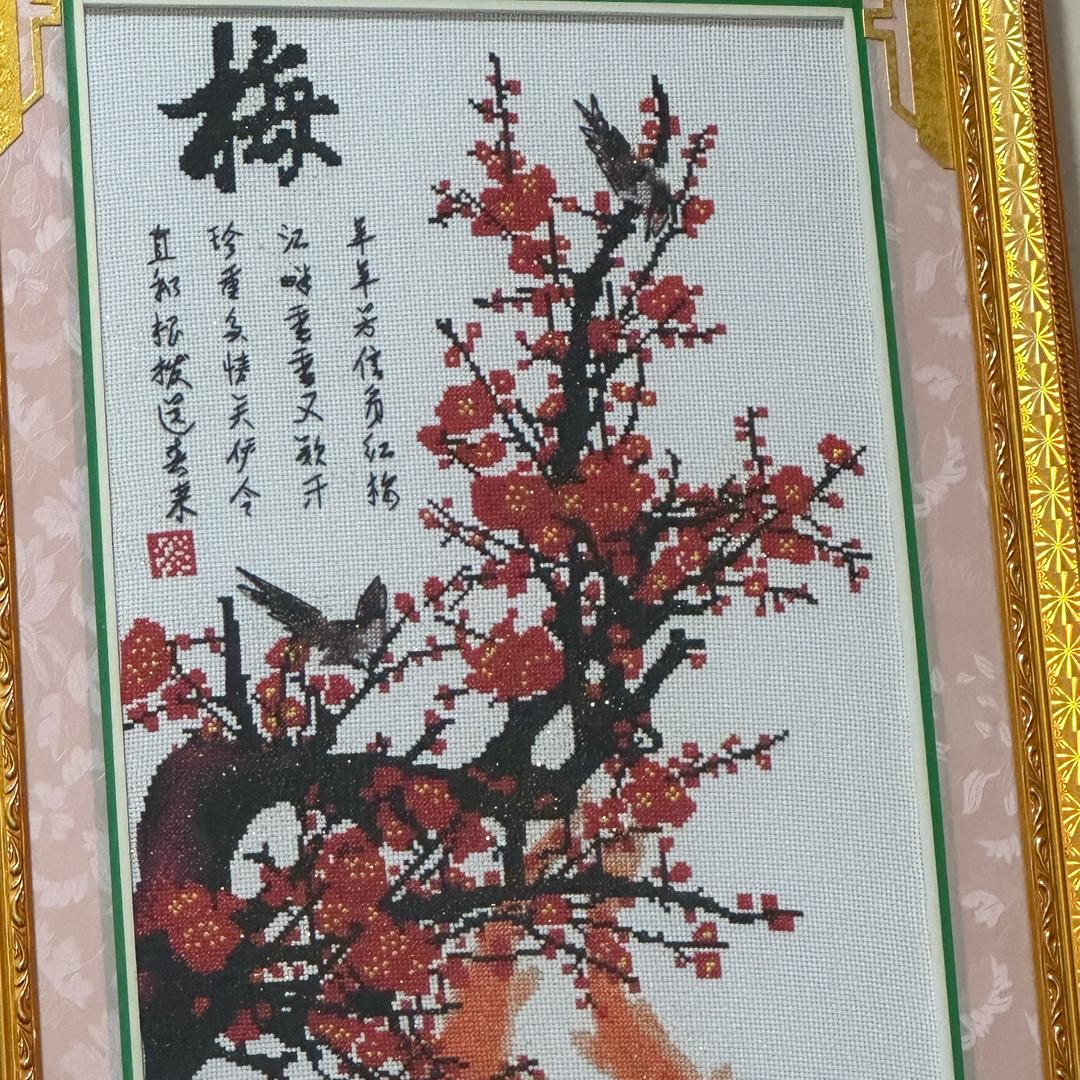 梅
年年芳信负红梅
江畔垂垂又欲开
珍重多情关伊令
直和根拨送春来